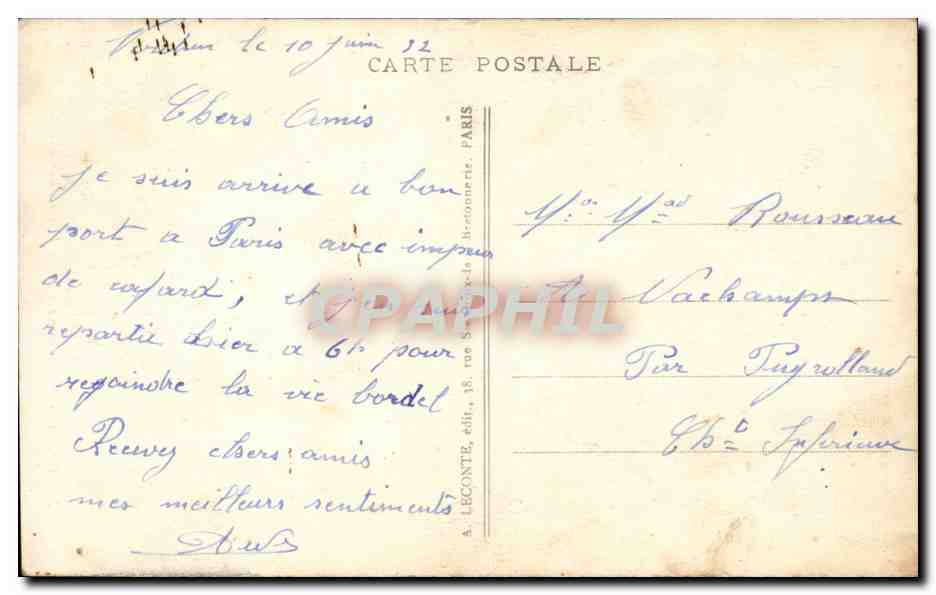 le 10 juin 32
CARTE POSTALE
Chers Amis
je suis arrive a bon
port a Paris avec
de cafard, et je suis
repartie hier a 6h pour
regoindre la vie bordel
Recevez chers amis
mes meilleurs sentiments
A. LECONTE, édit., 38, rue Ste-Croix-de-la-Bretonnerie, PARIS
Mr Mad Rousseau
Vachamps
Par Puyrolland
Chte Inferieure
CPAPHIL